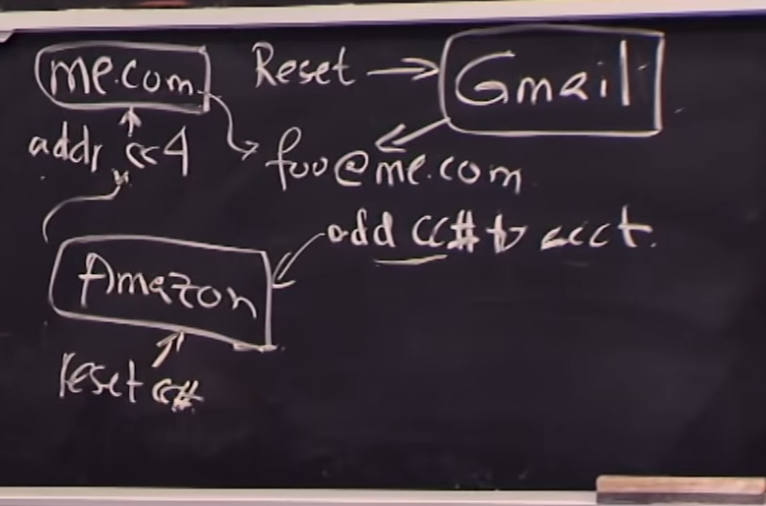 me.com Reset Gmail
addr cc4 foo@me.com
add CC# to acct.
Amazon
reset cc#